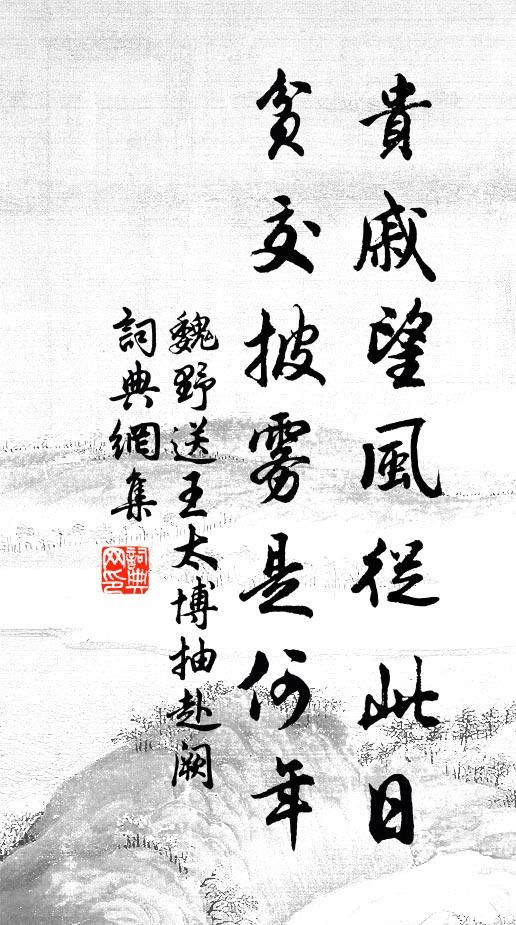 貴戚望風從此日
貧交披霧是何年
魏野送王太博抽赴闕
詞典網集
詞典网印